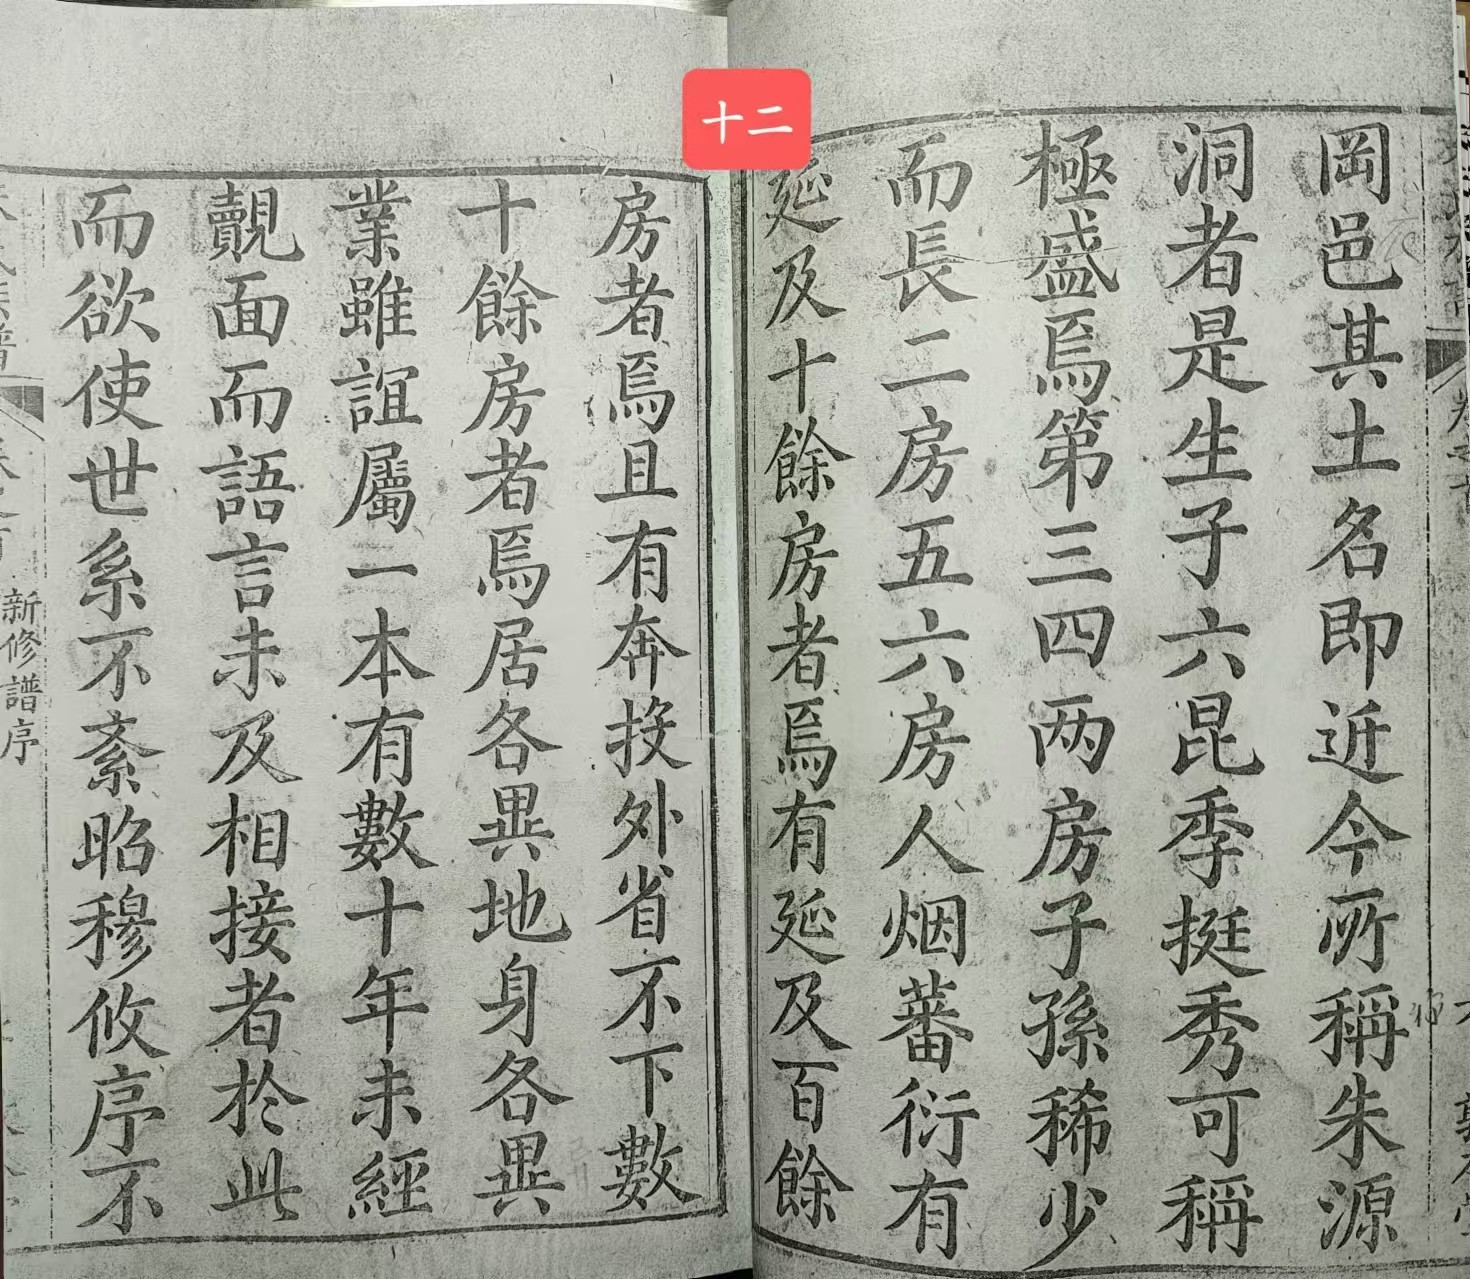 十二
岡邑其土名即近今所稱朱源
洞者是生子六昆季挺秀可稱
極盛焉第三四两房子孫稀少
而長二房五六房人烟蕃衍有
延及十餘房者焉有延及百餘
房者焉且有奔投外省不下數
十餘房者焉居各異地身各異
業雖誼屬一本有數十年未經
覿面而語言未及相接者於此
而欲使世系不紊昭穆攸序不
新修譜序